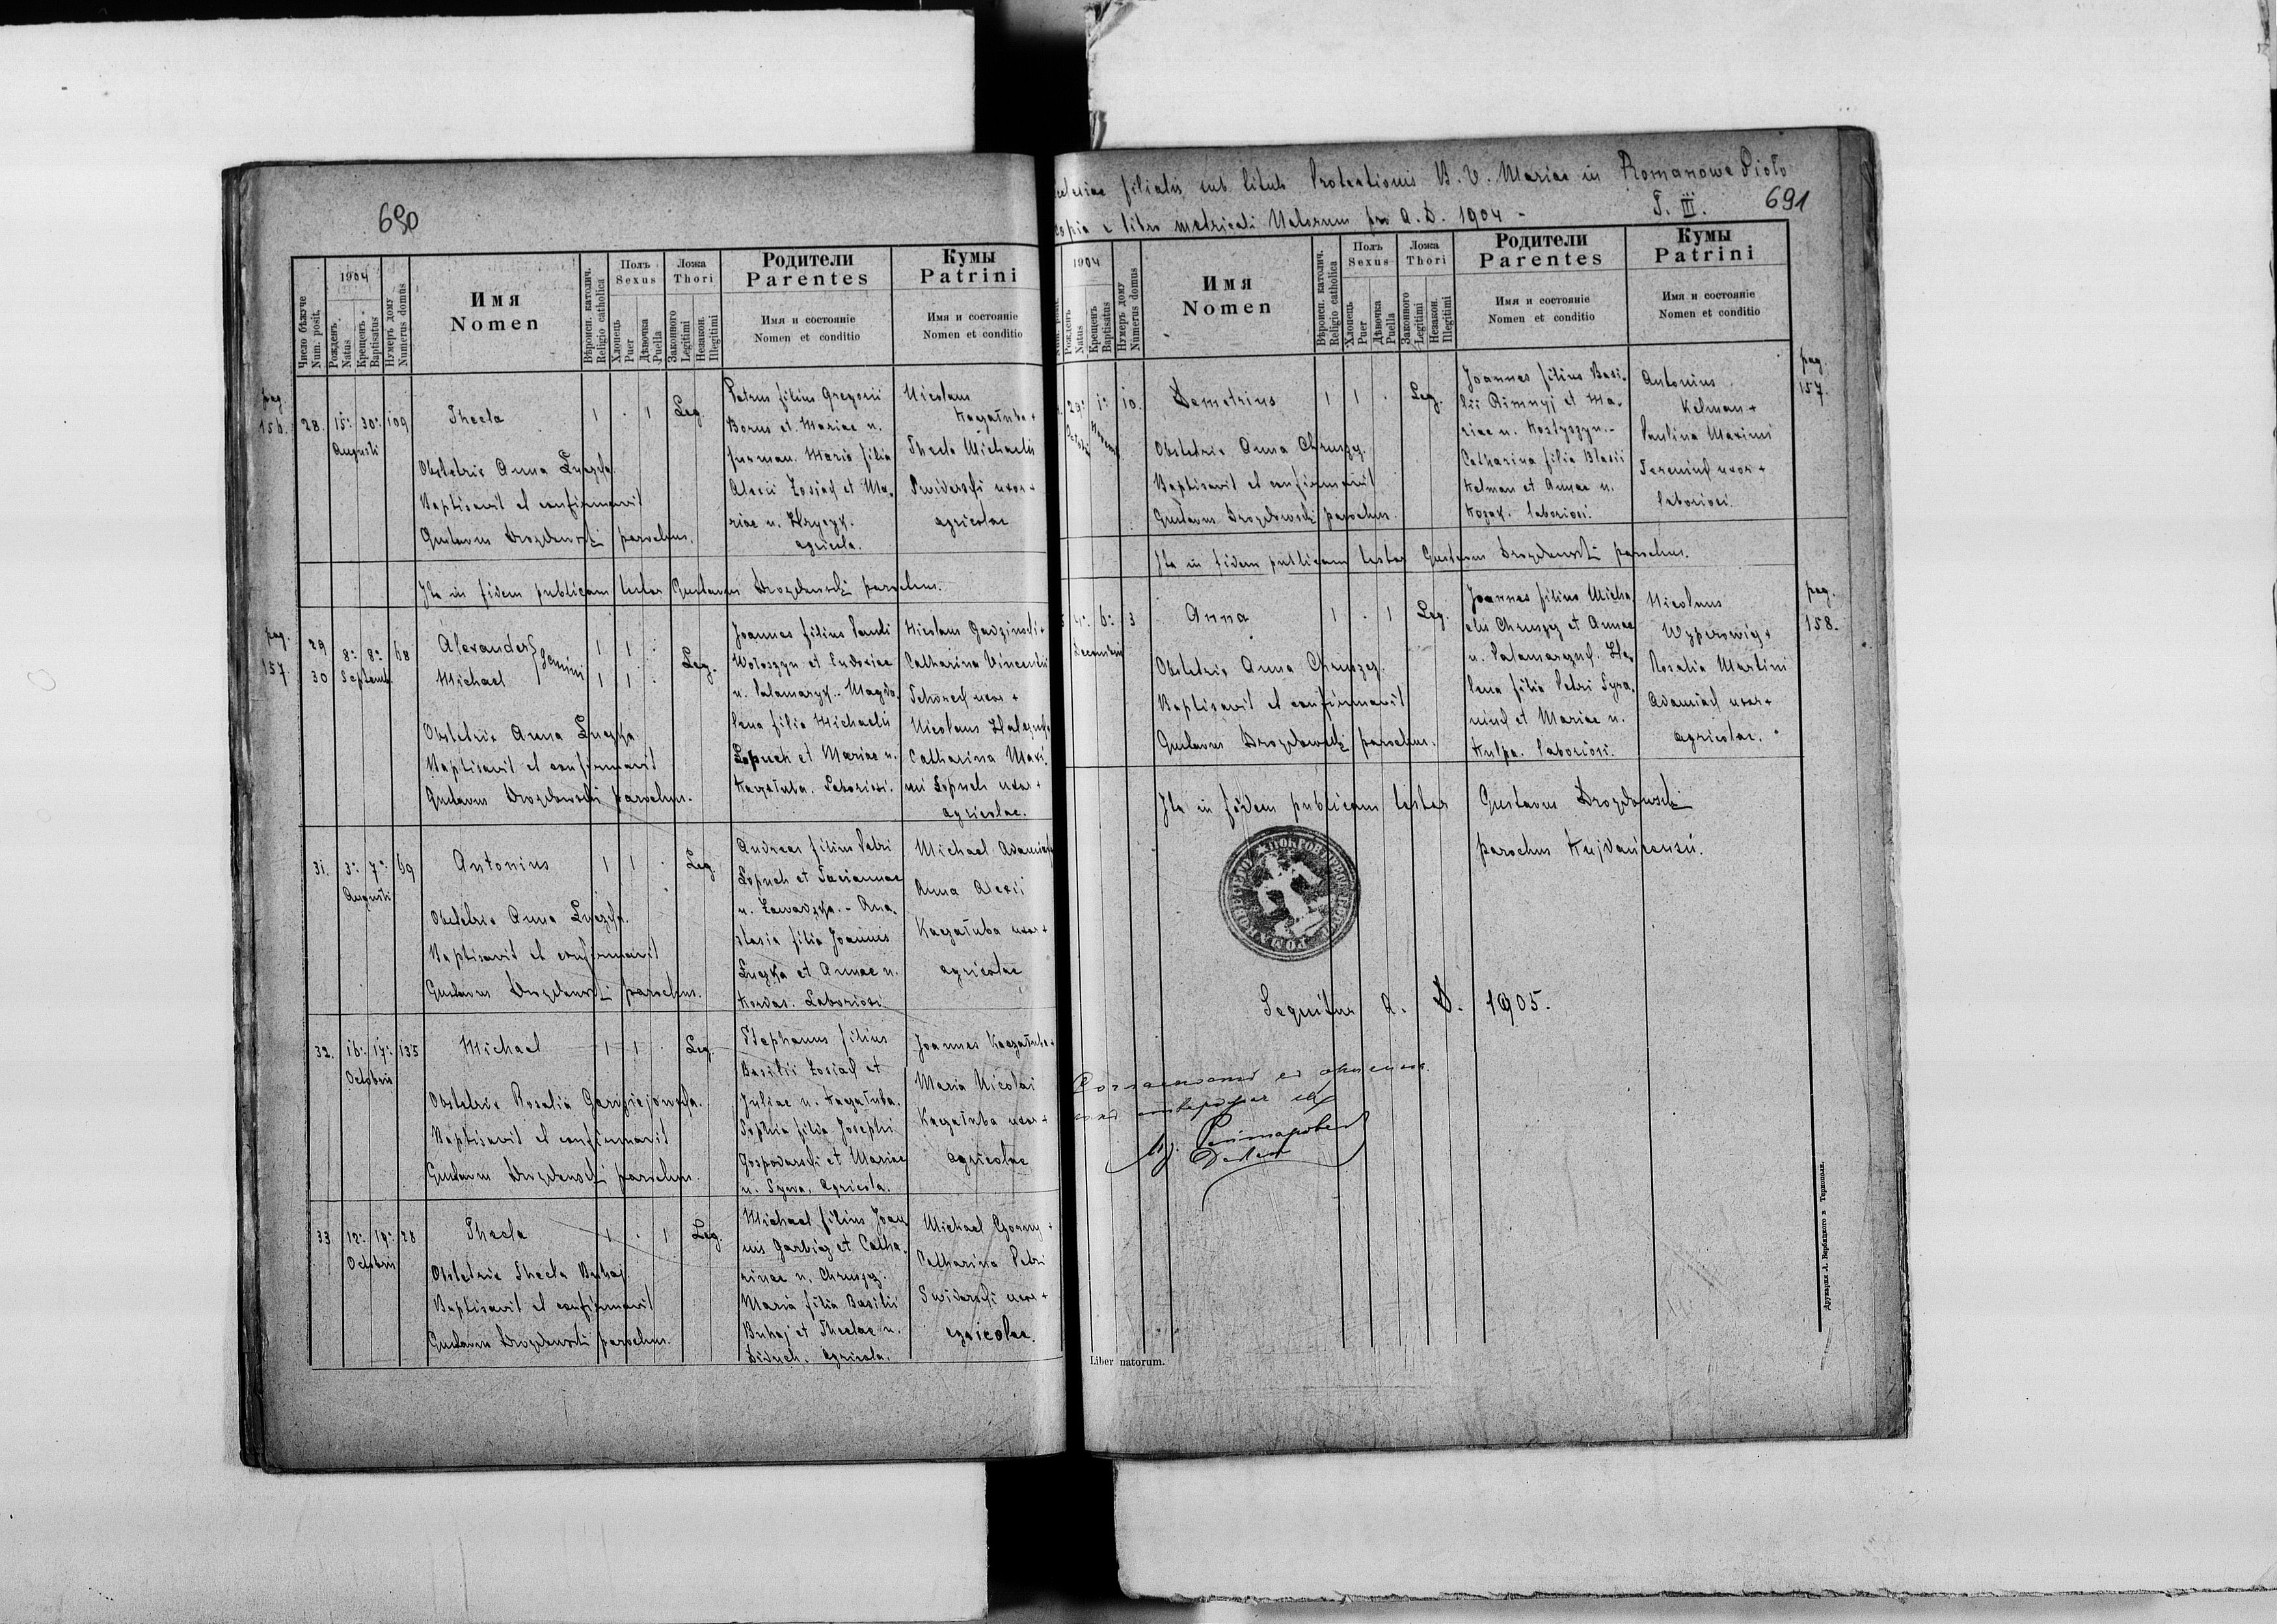 690
1904
Число бѣжуче
Num. posit.
Рожденъ
Natus
Крещенъ
Baptisatus
Нумеръ дому
Numerus domus
Имя
Nomen
Вѣроисп. католич.
Religio catholica
Полъ
Sexus
Хлопець
Puer
Дѣвочка
Puella
Ложа
Thori
Законного
Legitimi
Незакон.
Illegitimi
Родители
Parentes
Имя и состояніе
Nomen et conditio
Кумы
Patrini
Имя и состояніе
Nomen et conditio
pag.
156.
28. 15. 30. 109 Thecla 1 . 1 Leg.
Augusti
Obstetrix Anna Łuczka.
Baptisavit et confirmavit
Gustavus Drozdowski parochus.
Petrus filius Gregorii
Borus et Mariae n.
Furman. Maria filia
Alexii Zosiach et Ma-
riae n. Hryczk.
agricola.
Nicolaus
Kaczałuba +
Thecla Michaelis
Swiderski uxor +
agricolae
Ita in fidem publicam testor Gustavus Drozdowski parochus.
pag.
157
29 8. 8. 68 Alexander gemini 1 1 .
30 Septemb. Michael 1 1 . Leg.
Obstetrix Anna Łuczka.
Baptisavit et confirmavit
Gustavus Drozdowski parochus.
Joannes filius Pauli
Wołoszyn et Eudoxiae
n. Palamarczk. Magda-
lena filia Michaelis
Łopuch et Mariae n.
Kaczałuba. Laboriosi.
Nicolaus Gadzinski +
Catharina Vincentii
uxor +
Nicolaus
Catharina Maxi-
mi Łopuch uxor +
agricolae.
31. 3. 7. 69 Antonius 1 1 . Leg.
Augusti
Obstetrix Anna Łuczka.
Baptisavit et confirmavit
Gustavus Drozdowski parochus.
Andreas filius Petri
Łopuch et Parianae
n. Zawadzka. - Ana-
stasia filia Joannis
Łuczka et Annae n.
Kordas. Laboriosi
Michael Adamiach
Anna Alexii
Kaczałuba uxor +
agricolae
32. 16. 17. 135 Michael 1 1 . Leg.
Octobris
Obstetrix Rosalia
Baptisavit et confirmavit
Gustavus Drozdowski parochus.
Stephanus filius
Basilii Zosiach et
Juliae n. Kaczałuba.
Sophia filia Josephi
Gospodarski et Mariae
n. agricola.
Joannes Kaczałuba +
Maria Nicolai
Kaczałuba uxor +
agricolae
33. 12. 19. 28 Thecla 1 . 1 Leg.
Octobris
Obstetrix Thecla Buhaj.
Baptisavit et confirmavit
Gustavus Drozdowski parochus.
Michael filius Joan-
nis Garbicz et Catha-
rinae n. Chruszcz.
Maria filia Basilii
Buhaj et Theclae n.
Diduch. agricola.
Michael
Catharina Petri
Swiderski uxor +
agricolae.
ecclesiae filialis sub titulo Protectionis B. V. Mariae in Romanowe Sioło
copia e libro metricali Natorum pro A. D. 1904 -
T. III.
691
1904
Рожденъ
Natus
Крещенъ
Baptisatus
Нумеръ дому
Numerus domus
Имя
Nomen
Вѣроисп. католич.
Religio catholica
Полъ
Sexus
Хлопець
Puer
Дѣвочка
Puella
Ложа
Thori
Законного
Legitimi
Незакон.
Illegitimi
Родители
Parentes
Имя и состояніе
Nomen et conditio
Кумы
Patrini
Имя и состояніе
Nomen et conditio
pag.
157.
29. 1. 10. Demetrius 1 1 . Leg.
Obstetrix Anna Chruszcz.
Baptisavit et confirmavit
Gustavus Drozdowski parochus.
Joannes filius Basi-
lii Rimnyj et Ma-
riae n. Kostyszyn. -
Catharina filia Blasii
Kelman et Annae n.
Kozak. laboriosi.
Antonius
Kelman +
Paulina Maximi
uxor +
laboriosi.
Ita in fidem publicam testor Gustavus Drozdowski parochus.
pag.
158.
4. 6. 3 Anna 1 . 1 Leg.
Decembris
Obstetrix Anna Chruszcz.
Baptisavit et confirmavit
Gustavus Drozdowski parochus.
Joannes filius Micha-
elis Chruszcz et Annae
n. Palamarczuk. He-
lena filia Petri
et Mariae n.
Kulpa. laboriosi.
Nicolaus
Rosalia Martini
Adamiach uxor +
agricolae.
Ita in fidem publicam testor Gustavus Drozdowski
parochus Kujdanicensis.
Sequitur A. D. 1905.
Liber natorum.